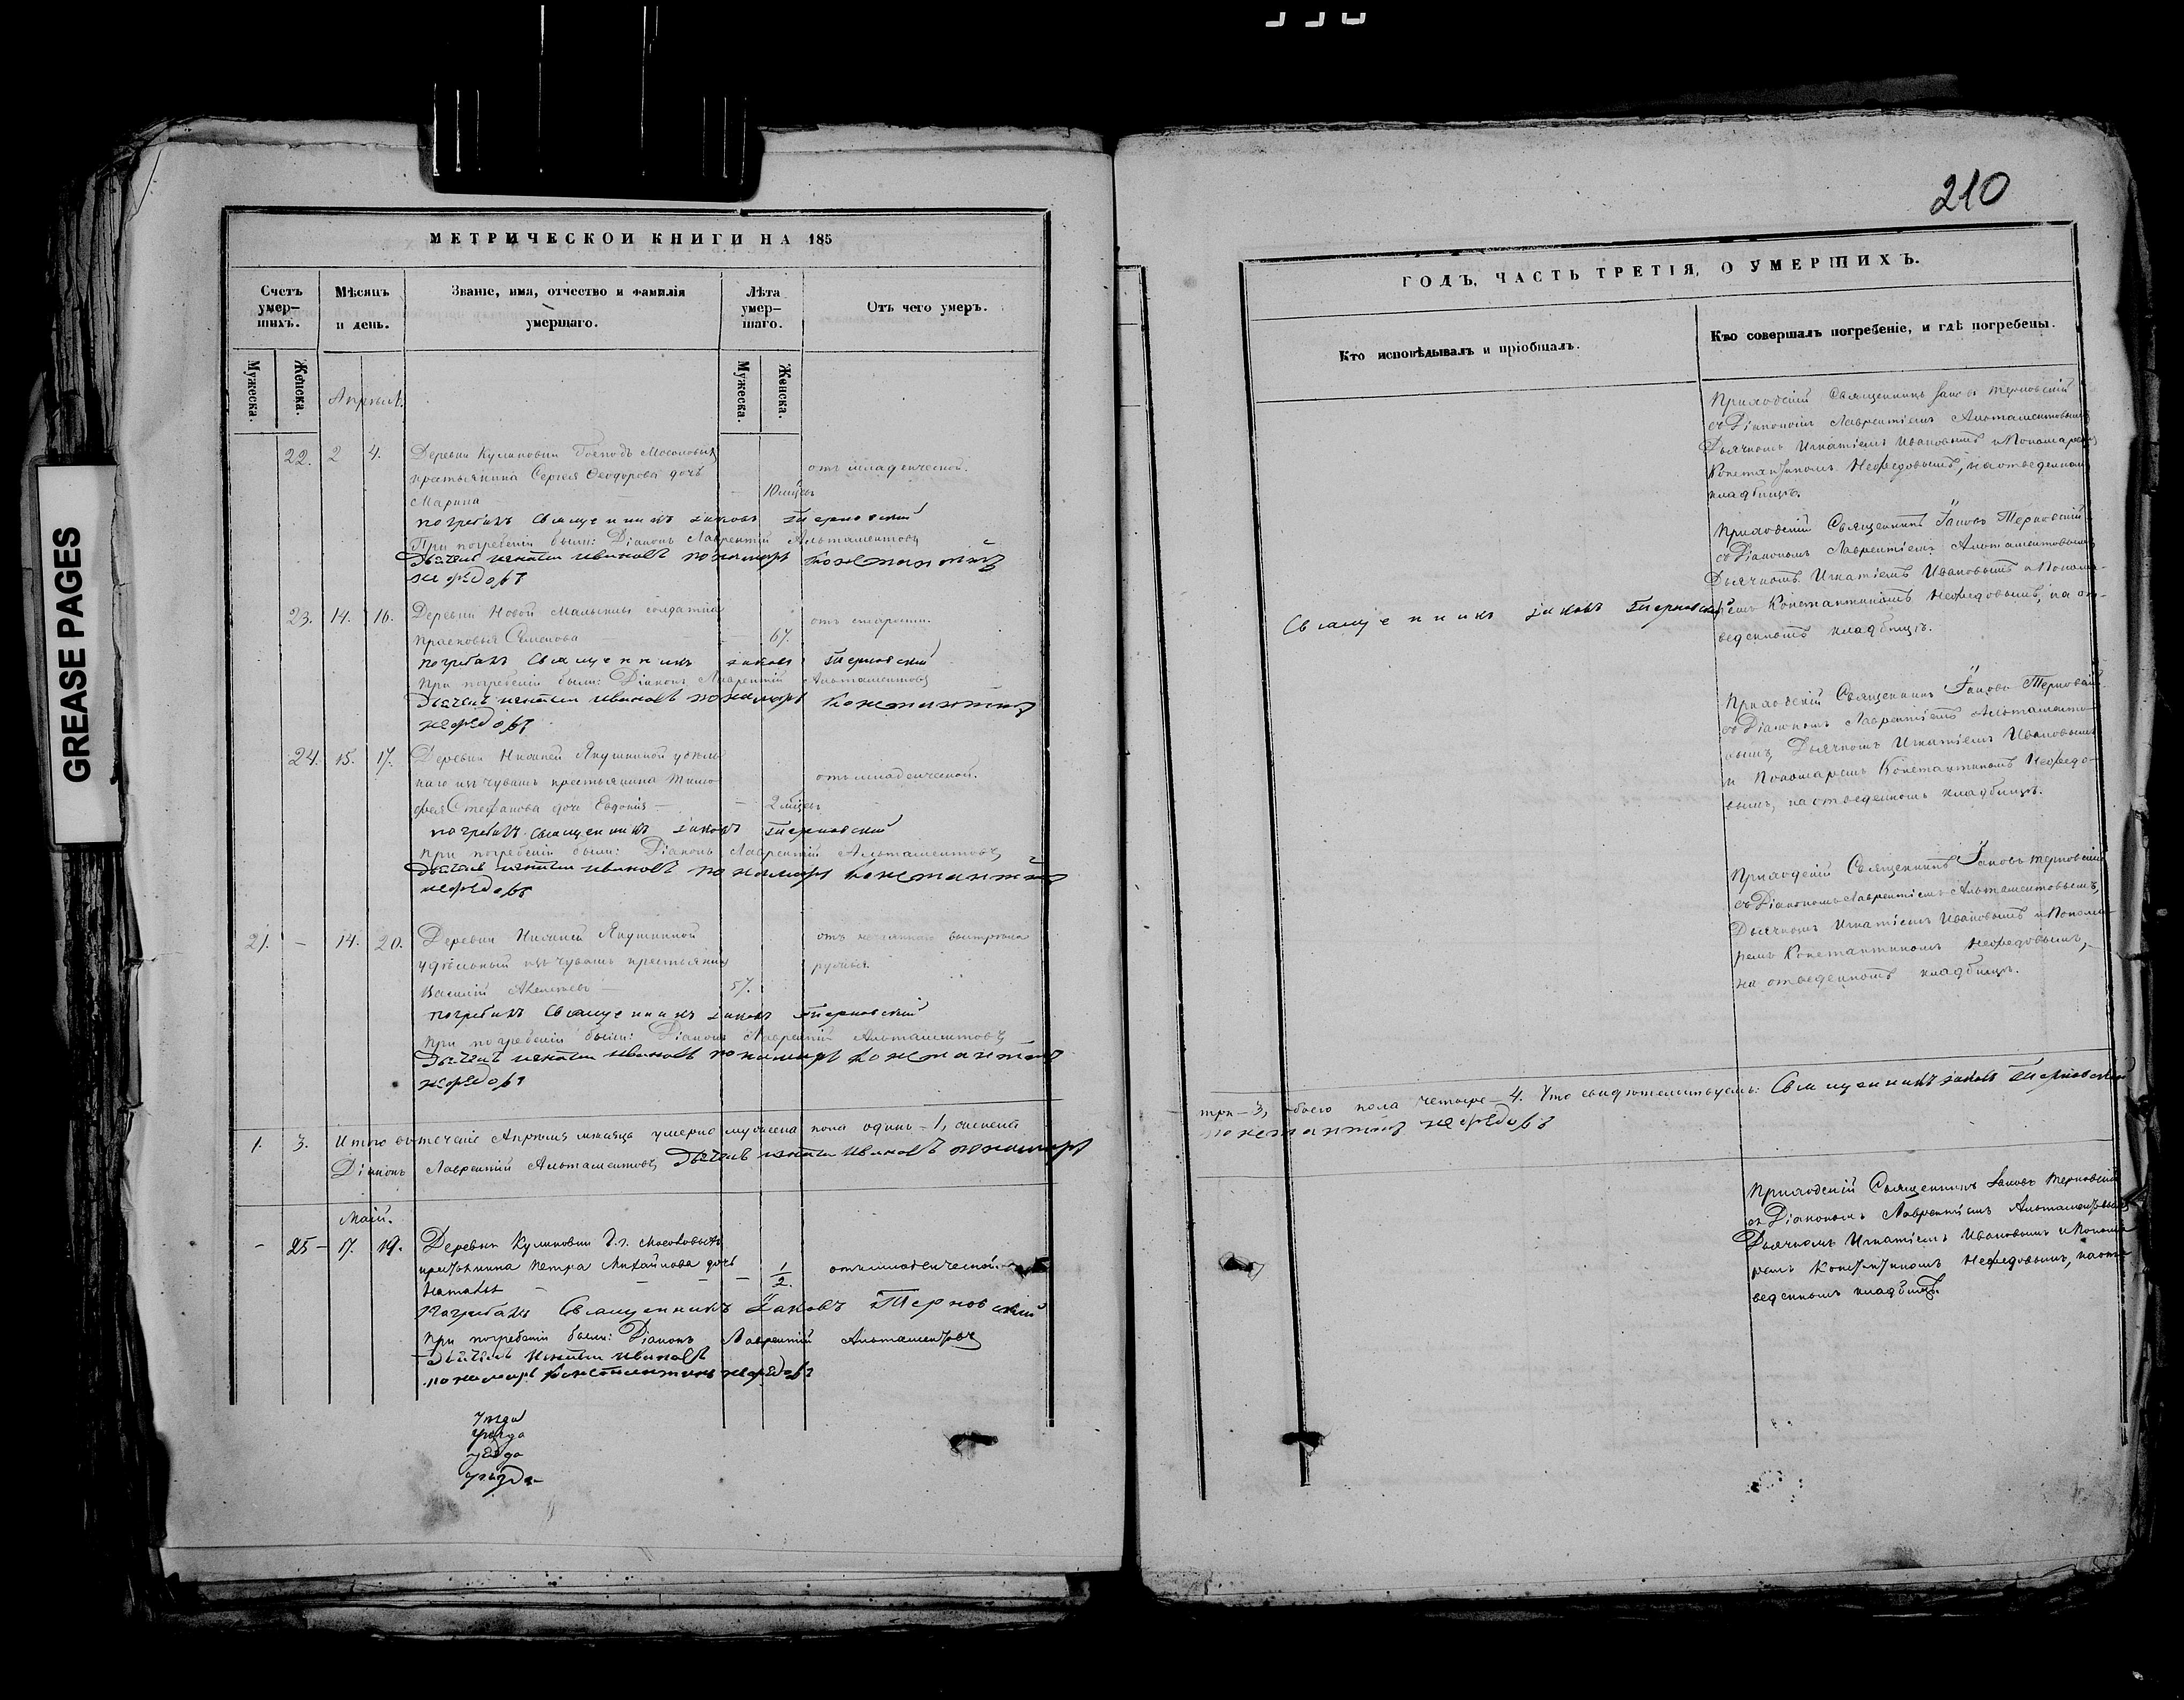 GREASE PAGES
МЕТРИЧЕСКОЙ КНИГИ НА 185
Счетъ умер–шихъ.
Мѣсяцъ и день.
Званіе, имя, отчество и фамилія умершаго.
Лѣта умер–шаго.
Отъ чего умеръ.
Мужеска.
Женска.
Мужеска.
Женска.
Апрѣль.
22. 2 4. Деревни Куликовки Господъ Мосоловыхъ
крестьянина Сергея Феодорова дочь
Марина — 10 мѣцевъ
отъ младенческой.
погребалъ Священникъ Іаковъ Терновский
При погребеніи были: Діаконъ Лаврентій Альтаментовъ
Дьячекъ игнатий ивановъ пономарь константинъ
нефедовъ
23. 14. 16. Деревни Новой Малыклы солдатка
Прасковья Семенова — 67.
отъ старости.
погребалъ Священникъ Іаковъ Терновский
При погребеніи были: Діаконъ Лаврентій Альтаментовъ
Дьячекъ игнатий ивановъ пономарь константинъ
нефедовъ
24. 15. 17. Деревни Нижней Якушкиной удѣль
наго изъ чувашъ крестьянина Тимо
фея Степанова дочь Евдокія — — 2 мѣцевъ
отъ младенческой.
погребалъ Священникъ Іаковъ Терновский
При погребеніи были: Діаконъ Лаврентій Альтаментовъ
Дьячекъ игнатий ивановъ пономарь константинъ
нефедовъ
21. — 14. 20. Деревни Нижней Якушкиной
удѣльный изъ чувашъ крестьянинъ
Василій — 57.
отъ выстрѣла
ружья.
погребалъ Священникъ Іаковъ Терновский
При погребеніи были: Діаконъ Лаврентій Альтаментовъ
Дьячекъ игнатий ивановъ пономарь константинъ
нефедовъ
1. 3. Итого въ теченіе Апрѣля мѣсяца умерло мужеска пола одинъ – 1, женска
Діаконъ Лаврентій Альтаментовъ Дьячекъ игнатий ивановъ пономарь
Маій.
— 25 — 17. 19. Деревни Куликовки Г.г. Мосоловыхъ
крестьянина Петра Михайлова дочь
Наталья — — 1/2.
отъ младенческой.
Погребалъ Священникъ Іаковъ Терновский
При погребеніи были: Діаконъ Лаврентій Альтаментовъ
Дьячекъ Игнатий ивановъ
пономарь константинъ нефедовъ
уезда
210
ГОДЪ, ЧАСТЬ ТРЕТІЯ, О УМЕРШИХЪ.
Кто исповѣдывалъ и пріобщалъ.
Кто совершалъ погребеніе, и гдѣ погребены.
Приходскій Священникъ Іаковъ Терновскій
съ Діакономъ Лаврентіемъ Альтаментовымъ
Дьячкомъ Игнатіемъ Ивановымъ и Пономаремъ
Константиномъ Нефедовымъ, на отведенномъ
кладбищѣ.
Священникъ Іаковъ Терновский
Приходскій Священникъ Іаковъ Терновскій
съ Діакономъ Лаврентіемъ Альтаментовымъ
Дьячкомъ Игнатіемъ Ивановымъ и Понома–
ремъ Константиномъ Нефедовымъ, на от–
веденномъ кладбищѣ.
Приходскій Священникъ Іаковъ Терновскій
съ Діакономъ Лаврентіемъ Альтаменто–
вымъ, Дьячкомъ Игнатіемъ Ивановымъ
и Пономаремъ Константиномъ Нефедо–
вымъ, на отведенномъ кладбищѣ.
Приходскій Священникъ Іаковъ Терновскій
съ Діакономъ Лаврентіемъ Альтаментовымъ,
Дьячкомъ Игнатіемъ Ивановымъ и Понома–
ремъ Константиномъ Нефедовымъ, –
на отведенномъ кладбищѣ.
три – 3, обоего пола четыре – 4. Что свидѣтельствуемъ: Священникъ Іаковъ Терновский
константинъ нефедовъ
Приходскій Священникъ Іаковъ Терновскій
съ Діакономъ Лаврентіемъ Альтаментовымъ
Дьячкомъ Игнатіемъ Ивановымъ и Понома
ремъ Константиномъ Нефедовымъ, на от–
веденномъ кладбищѣ.